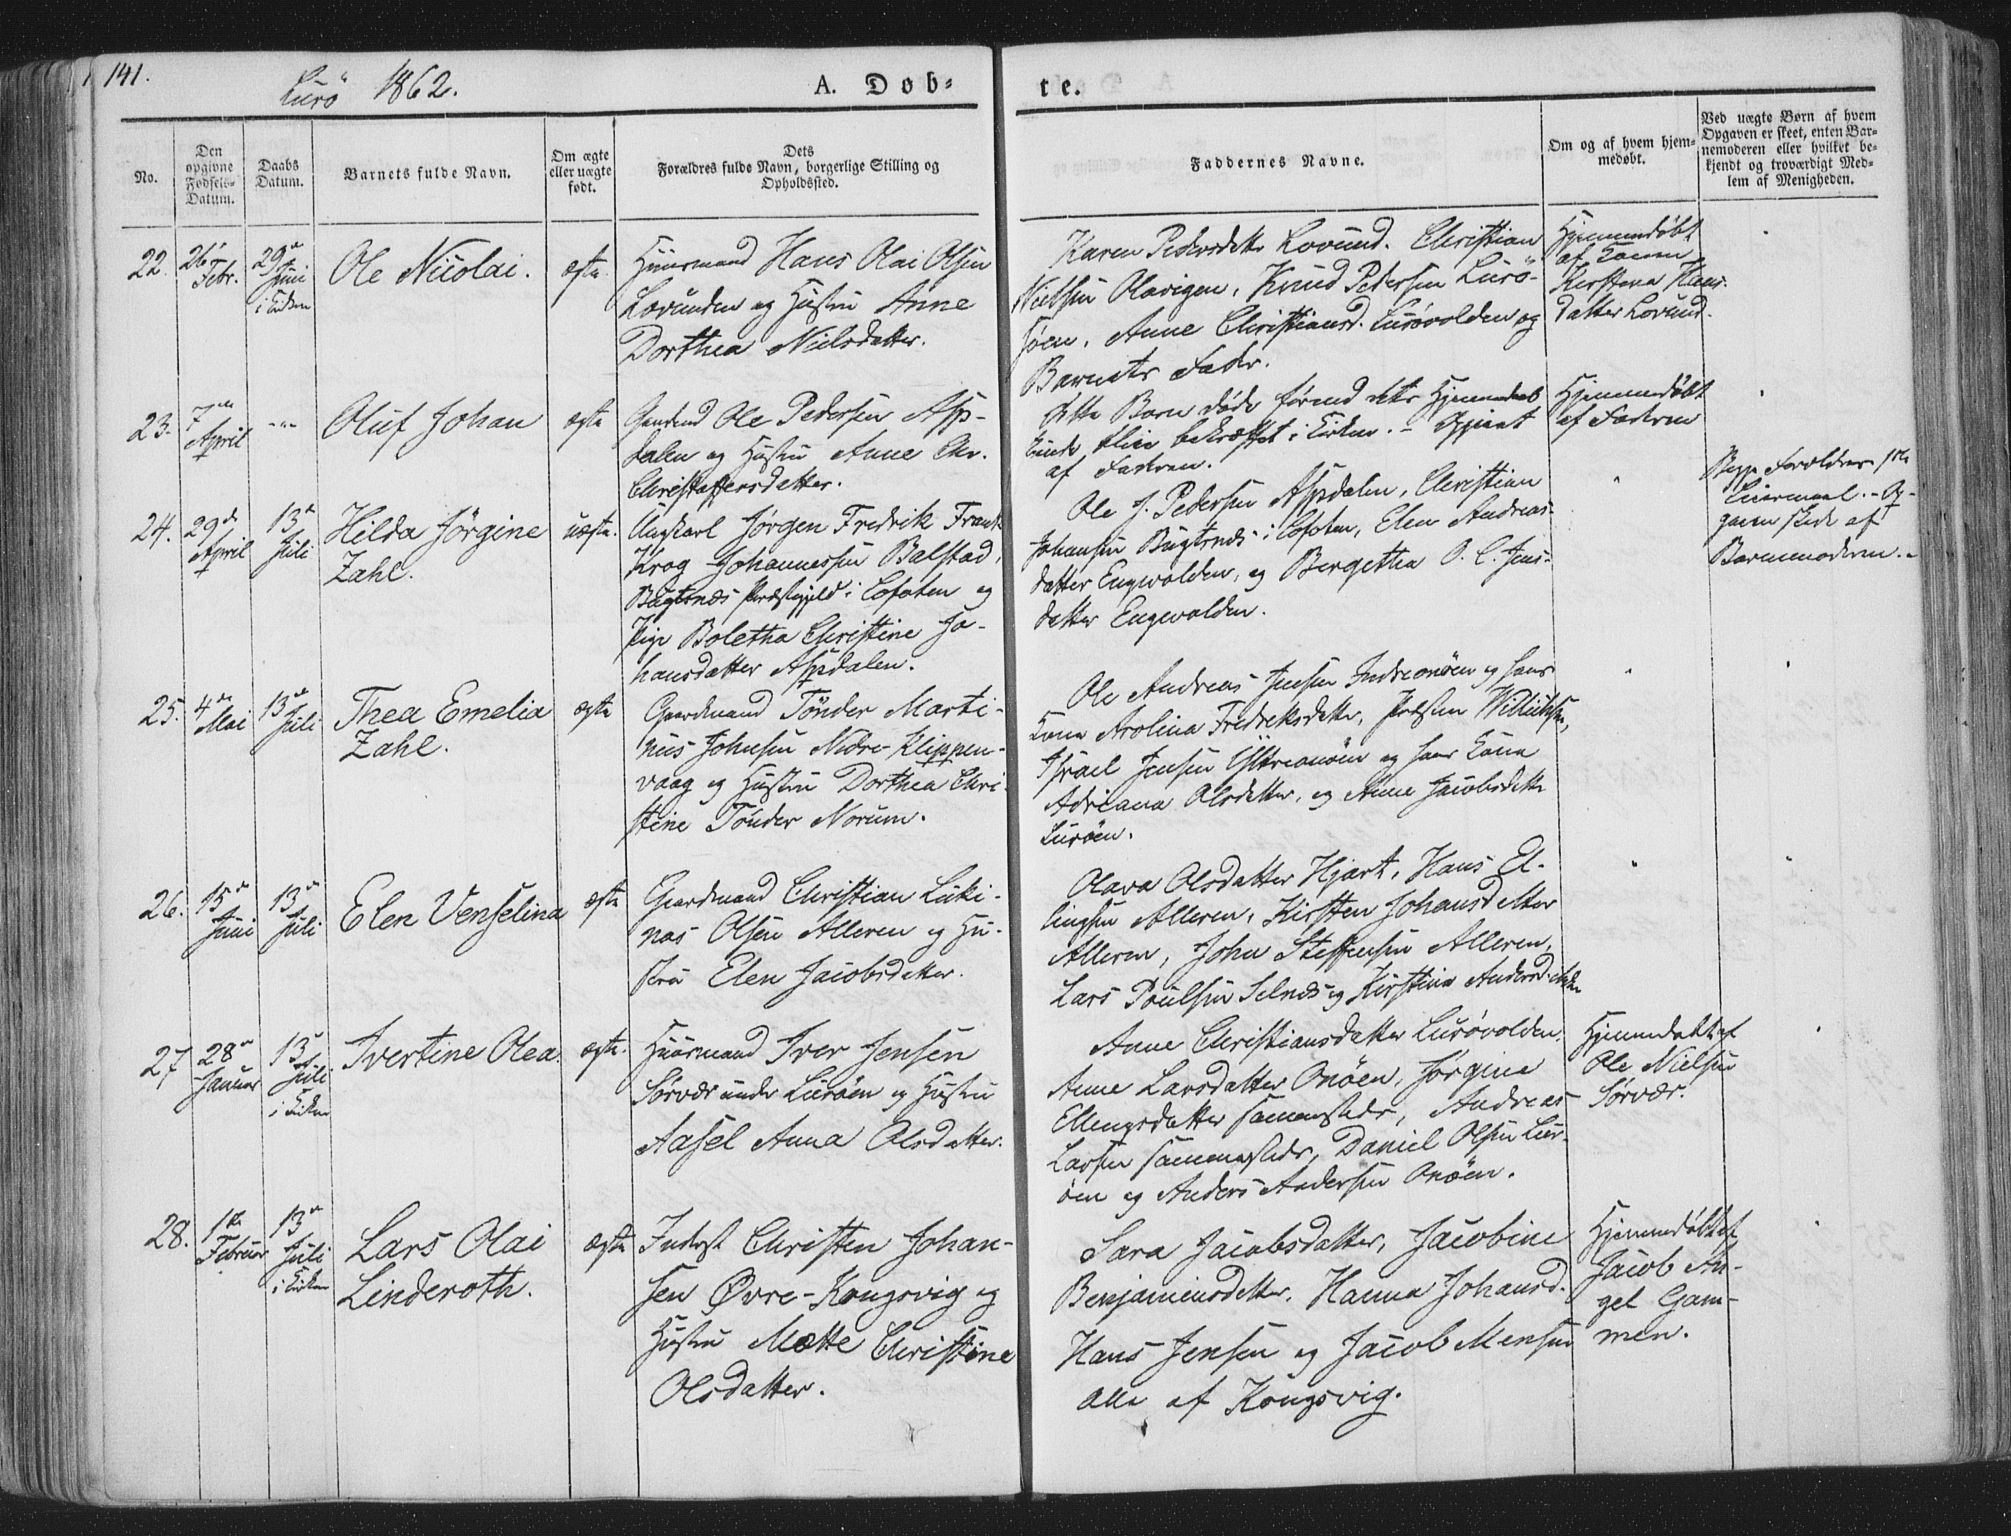 141.
Lurö 1862.
A. Döb-
te.
No.
Den opgivne Fødsels-Datum.
Daabs Datum.
Barnets fulde Navn.
Om ægte eller uægte født.
Dets Forældres fulde Navn, borgerlige Stilling og Opholdssted.
Faddernes Navne.
Om og af hvem hjem-medøbt.
Ved uægte Børn af hvem Opgaven er skeet, enten Bar-nemoderen eller hvilket be-kjendt og troværdigt Med-lem af Menigheden.
22.
26 Febr.
29 Juni i Kirken
Ole Nicolai.
ægte.
Huusmand Hans Olai Olsen
Lovunden og Hustru Anne
Dorthea Nielsdatter.
Karen Pedersdatter Lovund. Christian
Nielsen Olavigen, Knud Pedersen Lurö-
söen, Anne Christiansd. Lurövolden og
Barnets Fader.
Hjemmedöbt
af Konen
Kerstena Hans
datter Lovund.
23.
7de April
Oluf Johan
ægte
Gaardmd Ole Pedersen Asp-
dalen og Hustru Anne Chr.
Christoffersdatter.
Dette Barn döde förend dets Hjemmedaab
kunde blive bekræftet i Kirken. - Opgivet
af Faderen.
Hjemmedöbt
af Faderen
24.
29de April
13de Juli
Hilda Jörgine
Zahl.
uægte.
Ungkarl Jörgen Fredrik Frants
Krog Johannessen Balstad,
Bugtsnæs Præstegjeld i Lofoten og
Pige Boletha Christine Jo-
hansdatter Aspdalen.
Ole J. Pedersen Aspdalen, Christian
Johansen Bugtsnæs i Lofoten, Elen Andreas-
datter Engvolden, og Bergetha O. C. Jens-
datter Engvolden.
Begge Forældres 1ste
Leiermaal. - Op-
gaven skede af
Barnemoderen. -
25.
4de Mai
13de Juli
Thea Emelia
Zahl.
ægte
Gaardmand Tönder Marti-
nus Johnsen Nedre-Klippen-
vaag og Hustru Dorthea Chri-
stine Tönder Norum.
Ole Andreas Jensen Indreonöen og hans
Kone Arolina Fredriksdatter, Præsten
Israel Jensen Yttreonöen og hans Kone
Adriana Olsdatter, og Anne Jacobsdatter
Luröen.
26.
15de Juni
13de Juli
Elen Venselina
ægte
Gaardmand Christian Luki-
nas Olsen Alleren og Hu-
stru Elen Jacobsdatter.
Olava Olsdatter Hjart, Hans El-
lingsen Alleren, Kirsten Johansdatter
Alleren, John Steffensen Alleren,
Lars Poulsen Selnæs og Kirstina Andersd.
27
28de Januar
13de Juli i Kirken
Ivertine Olea.
ægte.
Huusmand Iver Jensen
Sörvær under Luröen og Hustru
Aasel Anna Olsdatter.
Anne Christiansdatter Lurövolden,
Anne Larsdatter Onöen, Jörgine
Ellingsdatter sammesteds, Andreas
Larsen sammesteds, Daniel Olsen Lur-
öen og Anders Andersen Onöen.
Hjemmedöbt af
Ole Nielsen
Sörvær.
28.
1ste Februar
13de Juli i Kirken
Lars Olai
Linderoth.
ægte
Inderst Christen Johan-
sen Øvre-Kongsvig og
Hustru Mætte Christine
Olsdatter.
Sara Jacobsdatter, Jacobine
Benjaminsdatter, Hanna Johansd.
Hans Jensen og Jacob Mensen
alle af Kongsvig.
Hjemmedöbt af
Jacob An-
gel Gam-
men.